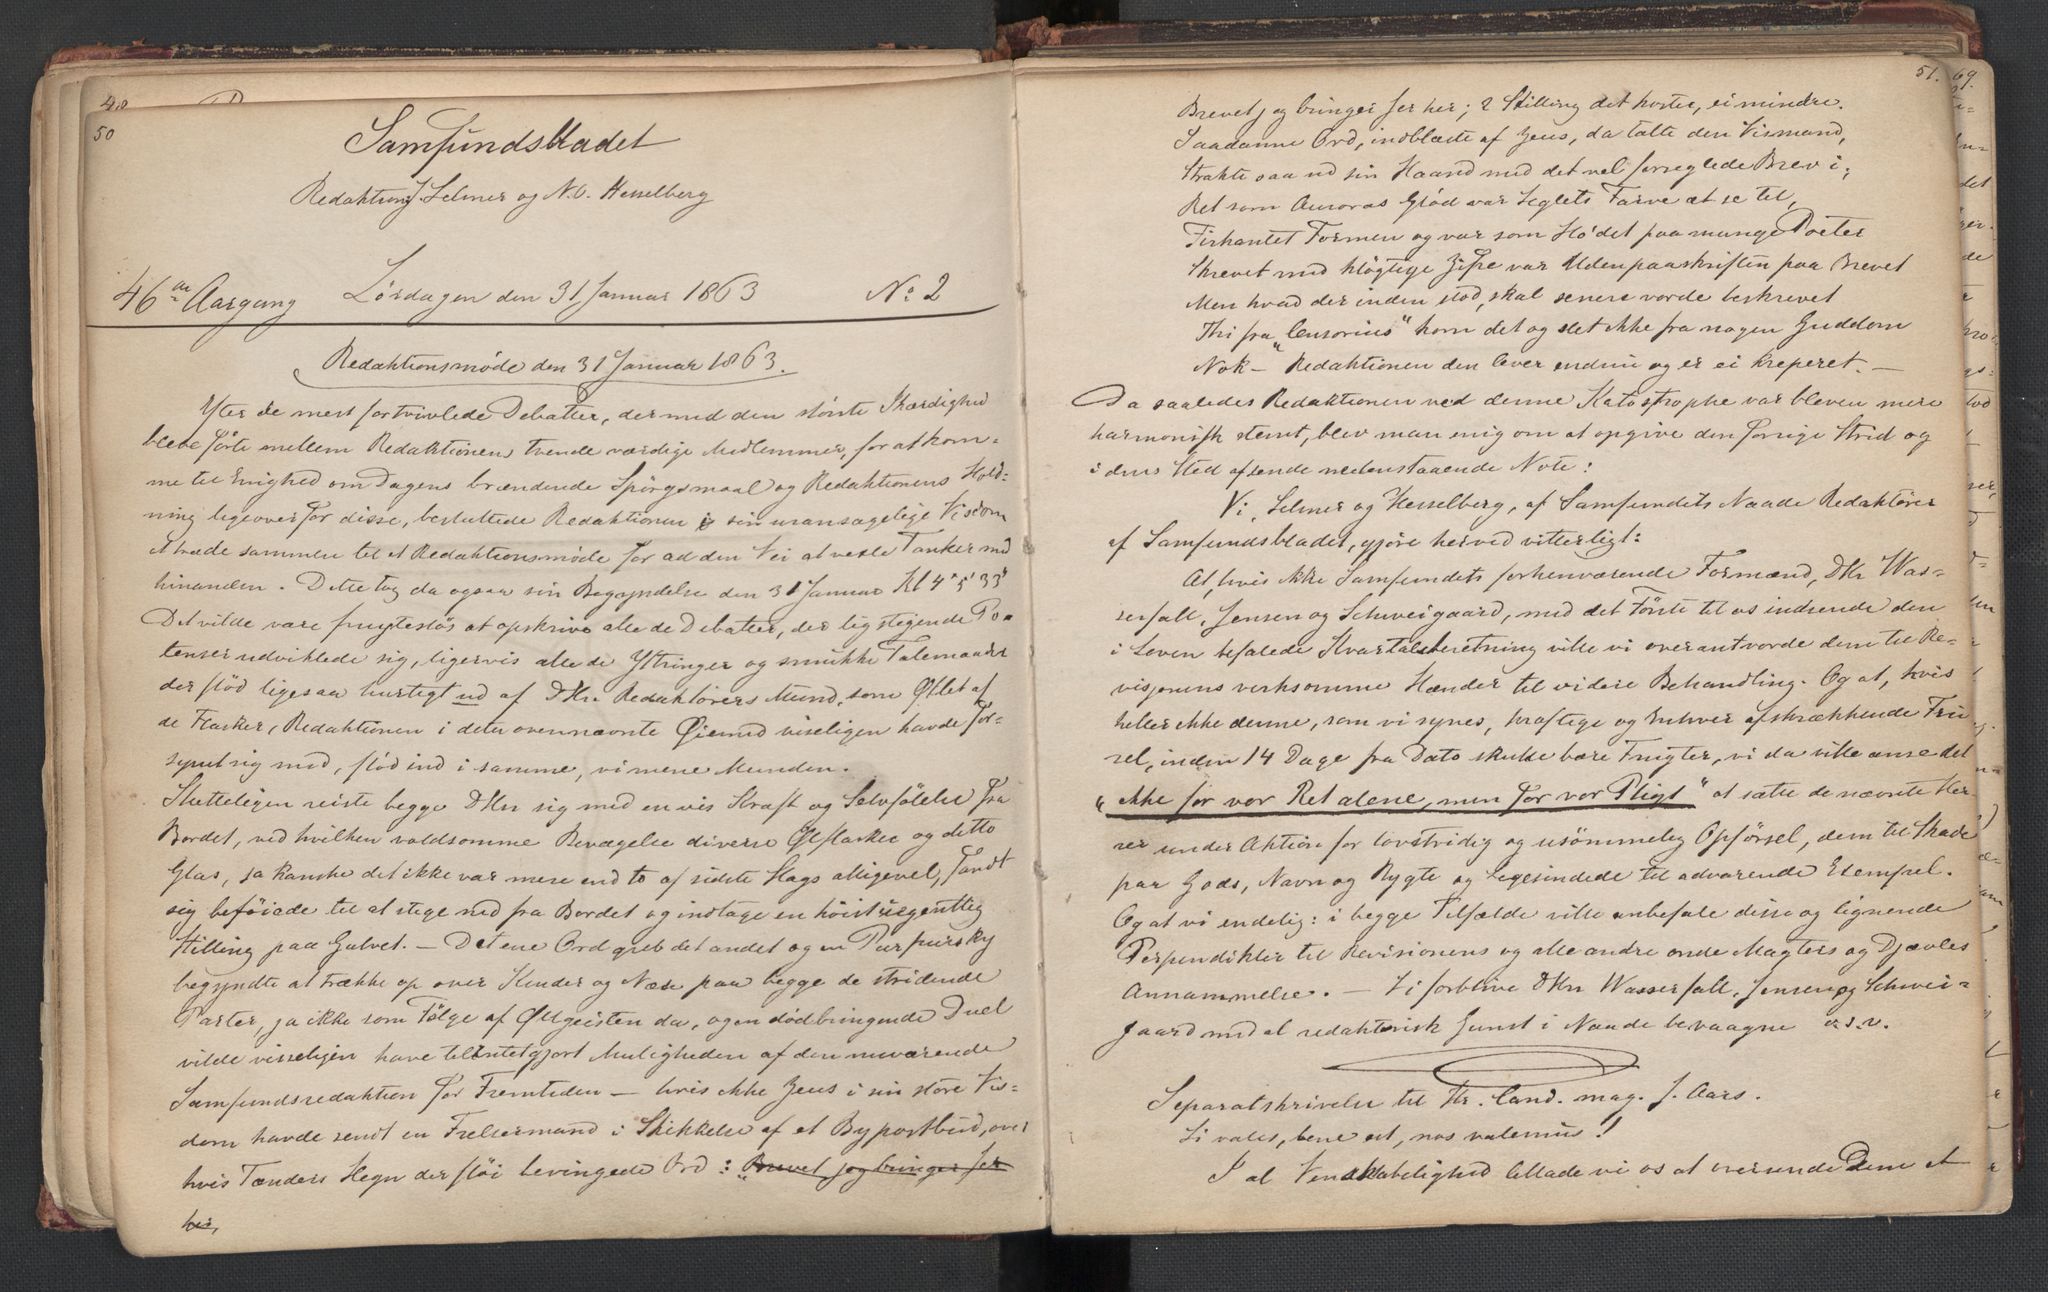 50
Samfundsbladet
Redaktion J. Selmer og N. C. Hesselberg
46de Aargang Lørdagen den 31 Januar 1863 No 2
Redaktionsmøde den 31 Januar 1863.
Yter de mest fortvivlede Debatter, der med den største Ihærdighed
bleve førte mellem Redaktionens tvende værdige Medlemmer, for at kom-
me til Enighed om Dagens brændende Spørgsmaal og Redaktionens Hold-
ning ligeoverfor disse, besluttede Redaktionen i sin uransagelige Visdom
at træde sammen til et Redaktionsmøde for ad den Vei at vexle Tanker med
hinanden. Dette tog da ogsaa sin Begyndelse den 31 Januar Kl 4° 5' 33"
Det vilde være frugtesløs at opskrive alle de Debatter, der lig stigende Po-
tenser udviklede sig, ligervis alle de Yttringer og smukke Talemaader
der flød ligesaa hurtigt ud af DHr. Redaktørers Mund, som Øllet af
de Flasker, Redaktionen i det ovennævnte Øiemed viseligen havde for-
synet sig med, flød ind i samme, vi mene Munden.
Slutteligen reiste begge DHrr sig med en vis Kraft og Selvfølelse fra
Bordet, ved hvilken voldsomme Bevægelse diverse Ølflasker og ditto
Glas, ja kanske det ikke var mere end to af sidste Slags alligevel, fandt
sig beføiede til at stige ned fra Bordet og indtage en høist uegentlig
Stilling paa Gulvet. — Det ene Ord greb det andet og en Purpursky
begyndte at trække op over Kinder og Næse paa begge de stridende
Parter, ja ikke som Følge af Ølgeisten da, og en dødbringende Duel
vilde visseligen have tilintetgjort Muligheden af den nuværende
Samfundsredaktion for Fremtiden — hvis ikke Zeus i sin store Vis-
dom havde sendt en Frelsermand i Skikkelse af et Bypostbud, over
hvis Tænders Hegn der fløi bevingede Ord: "Brevet jeg bringer Jer
her,
51. 69.
Brevet jeg bringer Jer her; 2 Skilling det koster, ei mindre.
Saadanne Ord, indblæste af Zeus, da talte den Vismand,
Strakte saa ud sin Haand med det vel forseglede Brev i;
Ret som Auroras Glød var Seglets Farve at se til,
Firkantet Formen og var som Hødet paa mange Poeter
Skrevet med kløgtige Zifre var Udenpaaskriften paa Brevet
Men hvad der inden stod, skal senere vorde beskrevet
Thi fra "Censorius" kom det og slet ikke fra nogen Guddom
Nok — Redaktionen den lever endnu og er ei kreperet. —
Da saaledes Redaktionen ved denne Katastrophe var bleven mere
harmonisk stemt, blev man enig om at opgive den forrige Strid og
i dens Sted afsende nedenstaaende Note:
Vi, Selmer og Hesselberg, af Samfundets Naade Redaktører
af Samfundsbladet, gjøre herved vitterligt:
At, hvis ikke Samfundets forhenværende Formænd, DHr Was-
serfall, Jensen og Schweigaard, med det Første til os indsende den
i Loven befalede Kvartalsberetning ville vi overantvorde dem til Re-
visjonens verksomme Hænder til videre Behandling. Og at, hvis
heller ikke denne, som vi synes, kraftige og Enhver afskrækkende Tru
sel, inden 14 Dage fra Dato skulde bære Frugter, vi da ville anse det
"ikke for vor Ret alene, men for vor Pligt" at sætte de nævnte Her-
rer under Aktion for lovstridig og usømmelig Opførsel, dem til Skade
paa Gods, Navn og Rygte og Ligesindede til advarende Exempel.
Og at vi endelig: i begge Tilfælde ville anbefale disse og lignende
Perpendikler til Revisionens og alle andre onde Magters og Djævles
Annammelse. — Vi forblive DHrr Wasserfall, Jensen og Schwei-
gaard med al redaktorisk Gunst i Naade bevaagne o.s.v.
Separatskrivelse til Hr. Cand. mag. J. Aars.
Si vales, bene est, nos valemus!
I al Venskabelighed tillade vi os at oversende Dem et